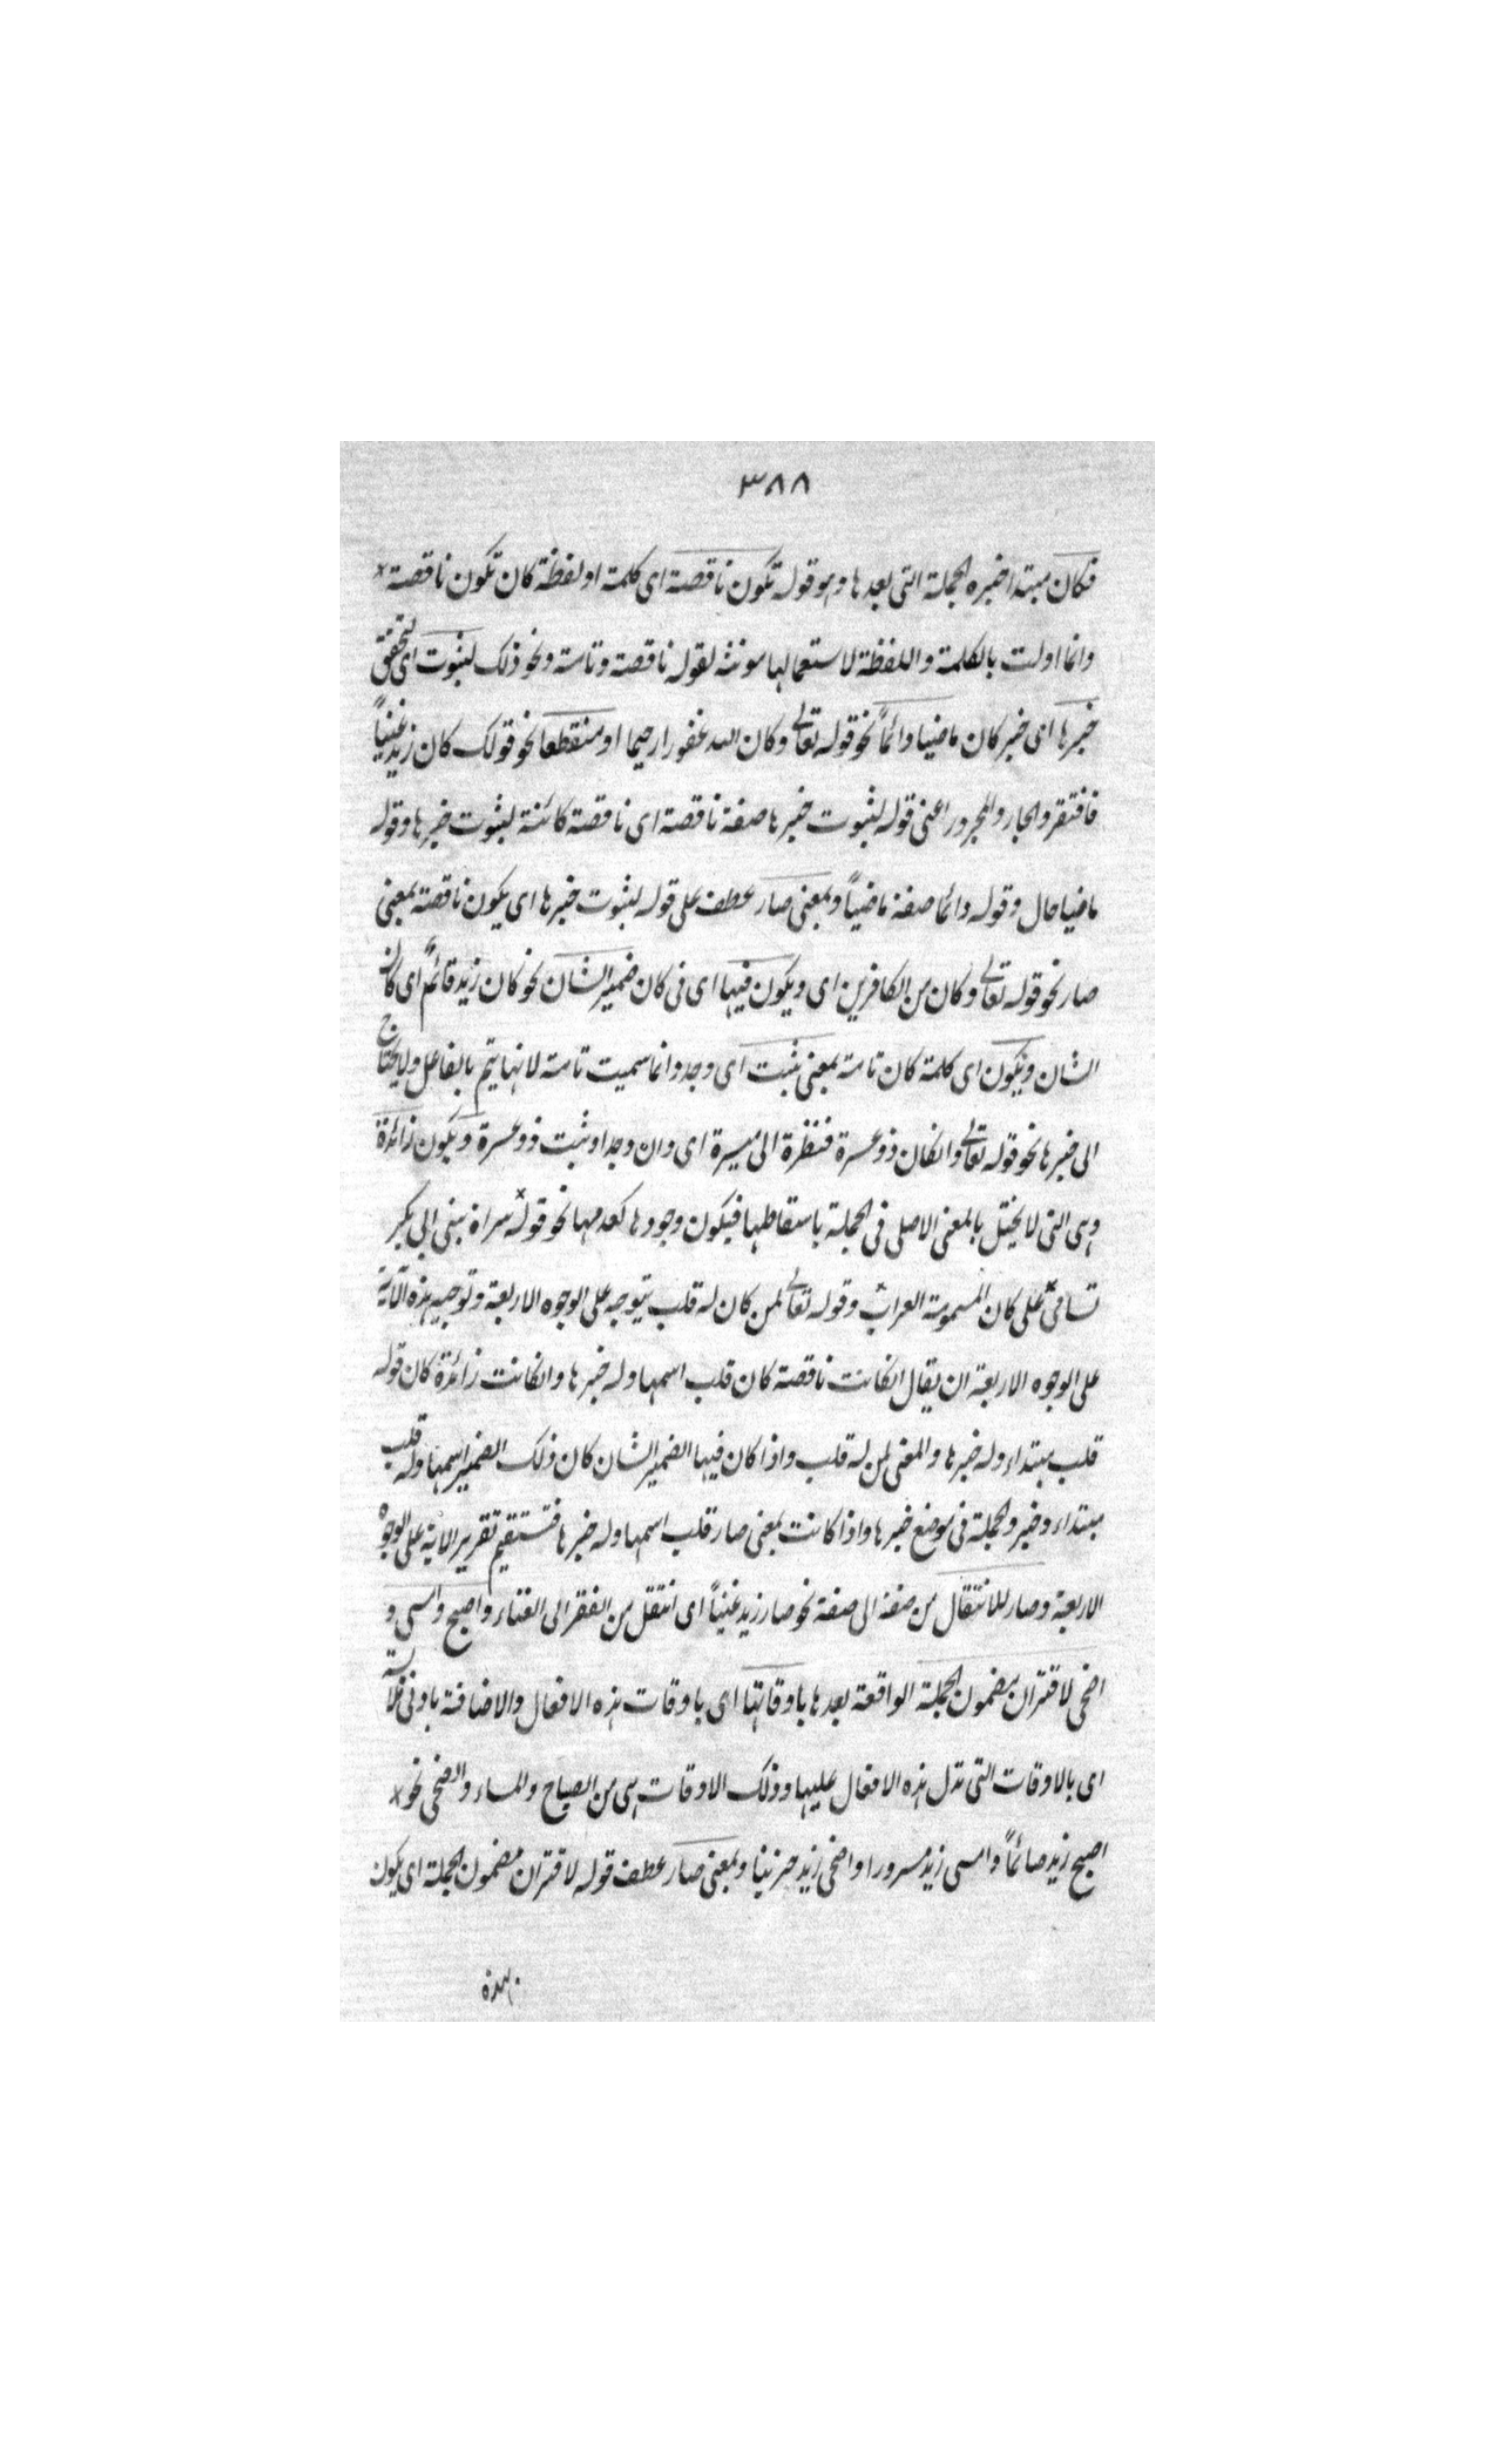 ٣٨٨
فكان مبتدا خبره الجملة التى بعدها وهو قوله تكون ناقصة اى كلمة او لفظة كان تكون ناقصة
وانما اولت بالكلمة واللفظة لاستعمالها مونثه لقوله ناقصة وتامة ونحو ذلك لثبوت اى لتحقق
خبرها اى خبر كان ماضيا دائماً نحو قوله تعالى وكان الله غفورا رحيما او منقطعا نحو قولك كان زيد غنياً
فافتقر والجار والمجرور اعنى قوله لثبوت خبرها صفة ناقصة اى ناقصة كائنة لثبوت خبرها وقوله
ماضيا حال وقوله دائما صفة ماضياً وبمعنى صار عطف على قوله لثبوت خبرها اى يكون ناقصة بمعنى
صار نحو قوله تعالى وكان من الكافرين اى ويكون فيها اى فى كان ضمير الشان نحو كان زيد قائم اى كان
الشان ويكون اى كلمة كان تامة بمعنى ثبت اى وجد وانما سميت تامة لانها يتم بالفاعل ولا يحتاج
الى خبرها نحو قوله تعالى وانكان ذو عسرة فنظرة الى ميسرة اى وان وجد او ثبت ذو عسرة ويكون زائدة
وهى التى لا يختل بالمعنى الاصلى فى الجملة باسقاطها فيكون وجودها كعدمها نحو قوله سراة بنى ابى بكر
تسامى على كان المسمومة العراب وقوله تعالى لمن كان له قلب يتوجه على الوجوه الاربعة وتوجيه هذه الآية
على الوجوه الاربعة ان يقال انكانت ناقصة كان قلب اسمها وله خبرها وانكانت زائدة كان قوله
قلب مبتداء وله خبرها والمعنى لمن له قلب واذا كان فيها الضمير الشان كان ذلك الضمير اسمها وله قلب
مبتداء وخبر والجملة فى موضع خبرها واذا كانت بمعنى صار قلب اسمها وله خبرها فتستقيم تقرير الاية على الوجوه
الاربعة وصار للانتقال من صفة الى صفة نحو صار زيد غنياً اى انتقل من الفقر الى الغناء واصبح وامسى و
اضحى لاقتران مضمون الجملة الواقعة بعدها باوقاتها اى باوقات هذه الافعال والاضافة بادنى ملابسة
اى بالاوقات التى تدل هذه الافعال عليها وذلك الاوقات هى من الصباح والمساء والضحى نحو
اصبح زيد صائماً وامسى زيد مسرورا واضحى زيد حزينا وبمعنى صار عطف قوله لاقتران مضمون الجملة اى يكون
هذه